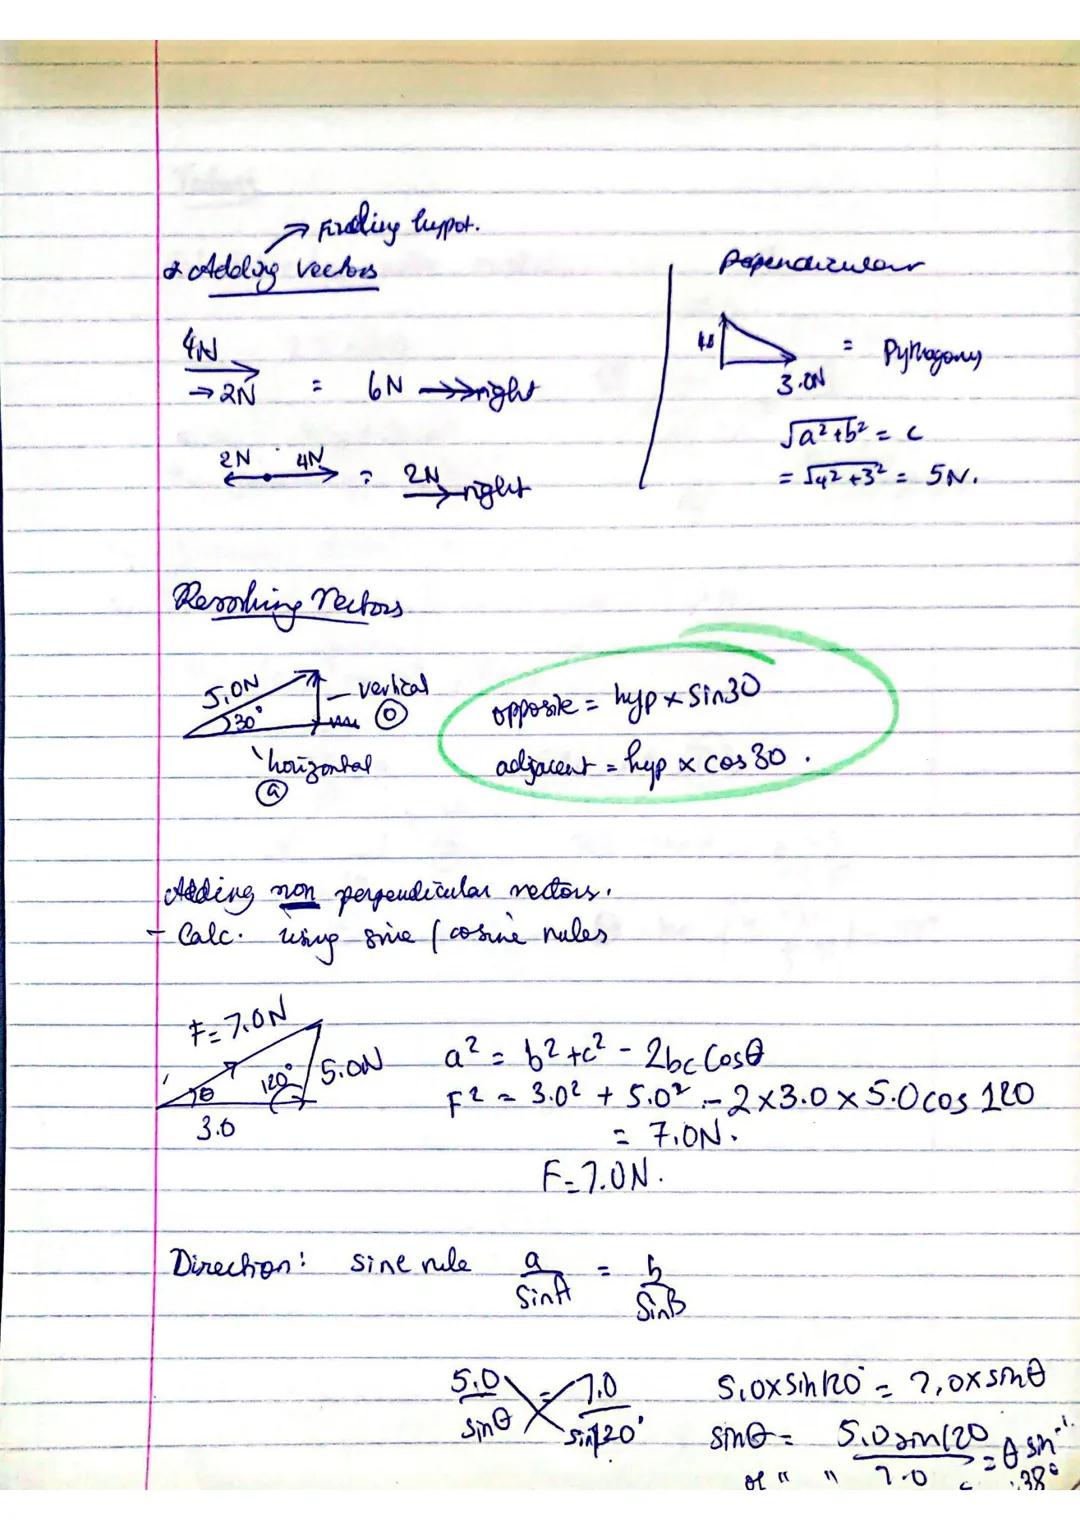 → Finding hypot.
Adding vectors
4N
→ 2N = 6N →→ right
2N 4N = 2N right
Perpendicular
3.0N = Pythagorus
√a²+b² = c
= √4²+3² = 5N.
Resolving Vectors
5.0N
30°
vertical
O
horizontal
a
opposite = hyp x Sin30
adjacent = hyp x cos30.
Adding non perpendicular vectors.
- Calc. using sine / cosine rules
F = 7.0N
θ 120° 5.0N
3.0
a² = b² + c² - 2bc Cosθ
F² = 3.0² + 5.0² - 2x3.0 x 5.0 cos 120
= 7.0N.
F = 7.0N.
Direction: sine rule a/SinA = b/SinB
5.0/sinθ = 7.0/sin120°
5.0xSin120° = 7.0xsinθ
sinθ = 5.0sin120/7.0 = θ sin⁻¹
38°